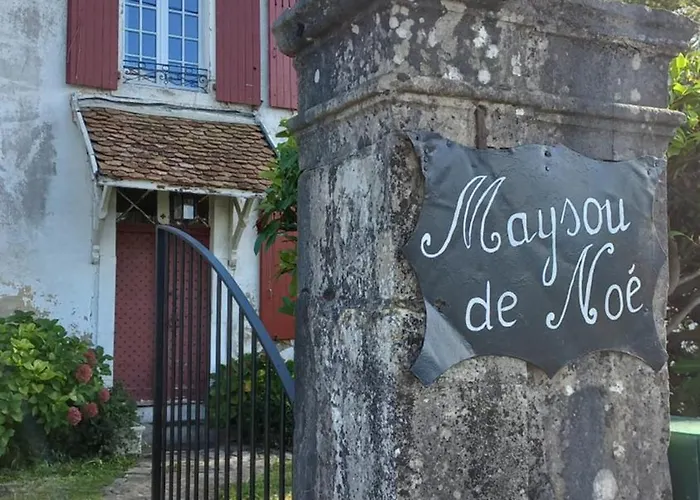 Maysou
de Noé